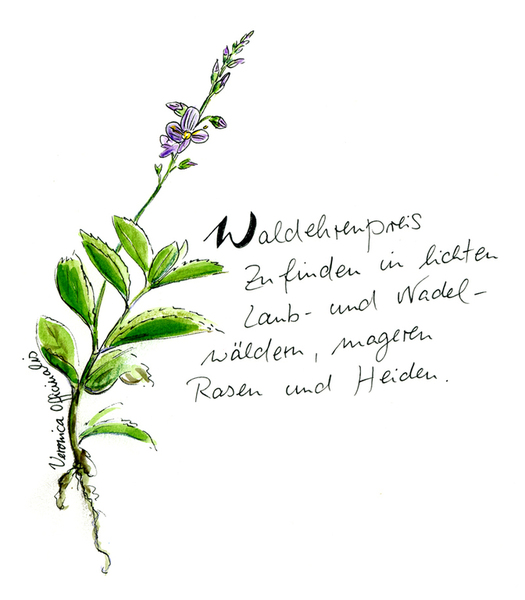 Waldehrenpreis
Zu finden in lichten
Laub- und Nadel-
wäldern, mageren
Rasen und Heiden.
Veronica Officinalis